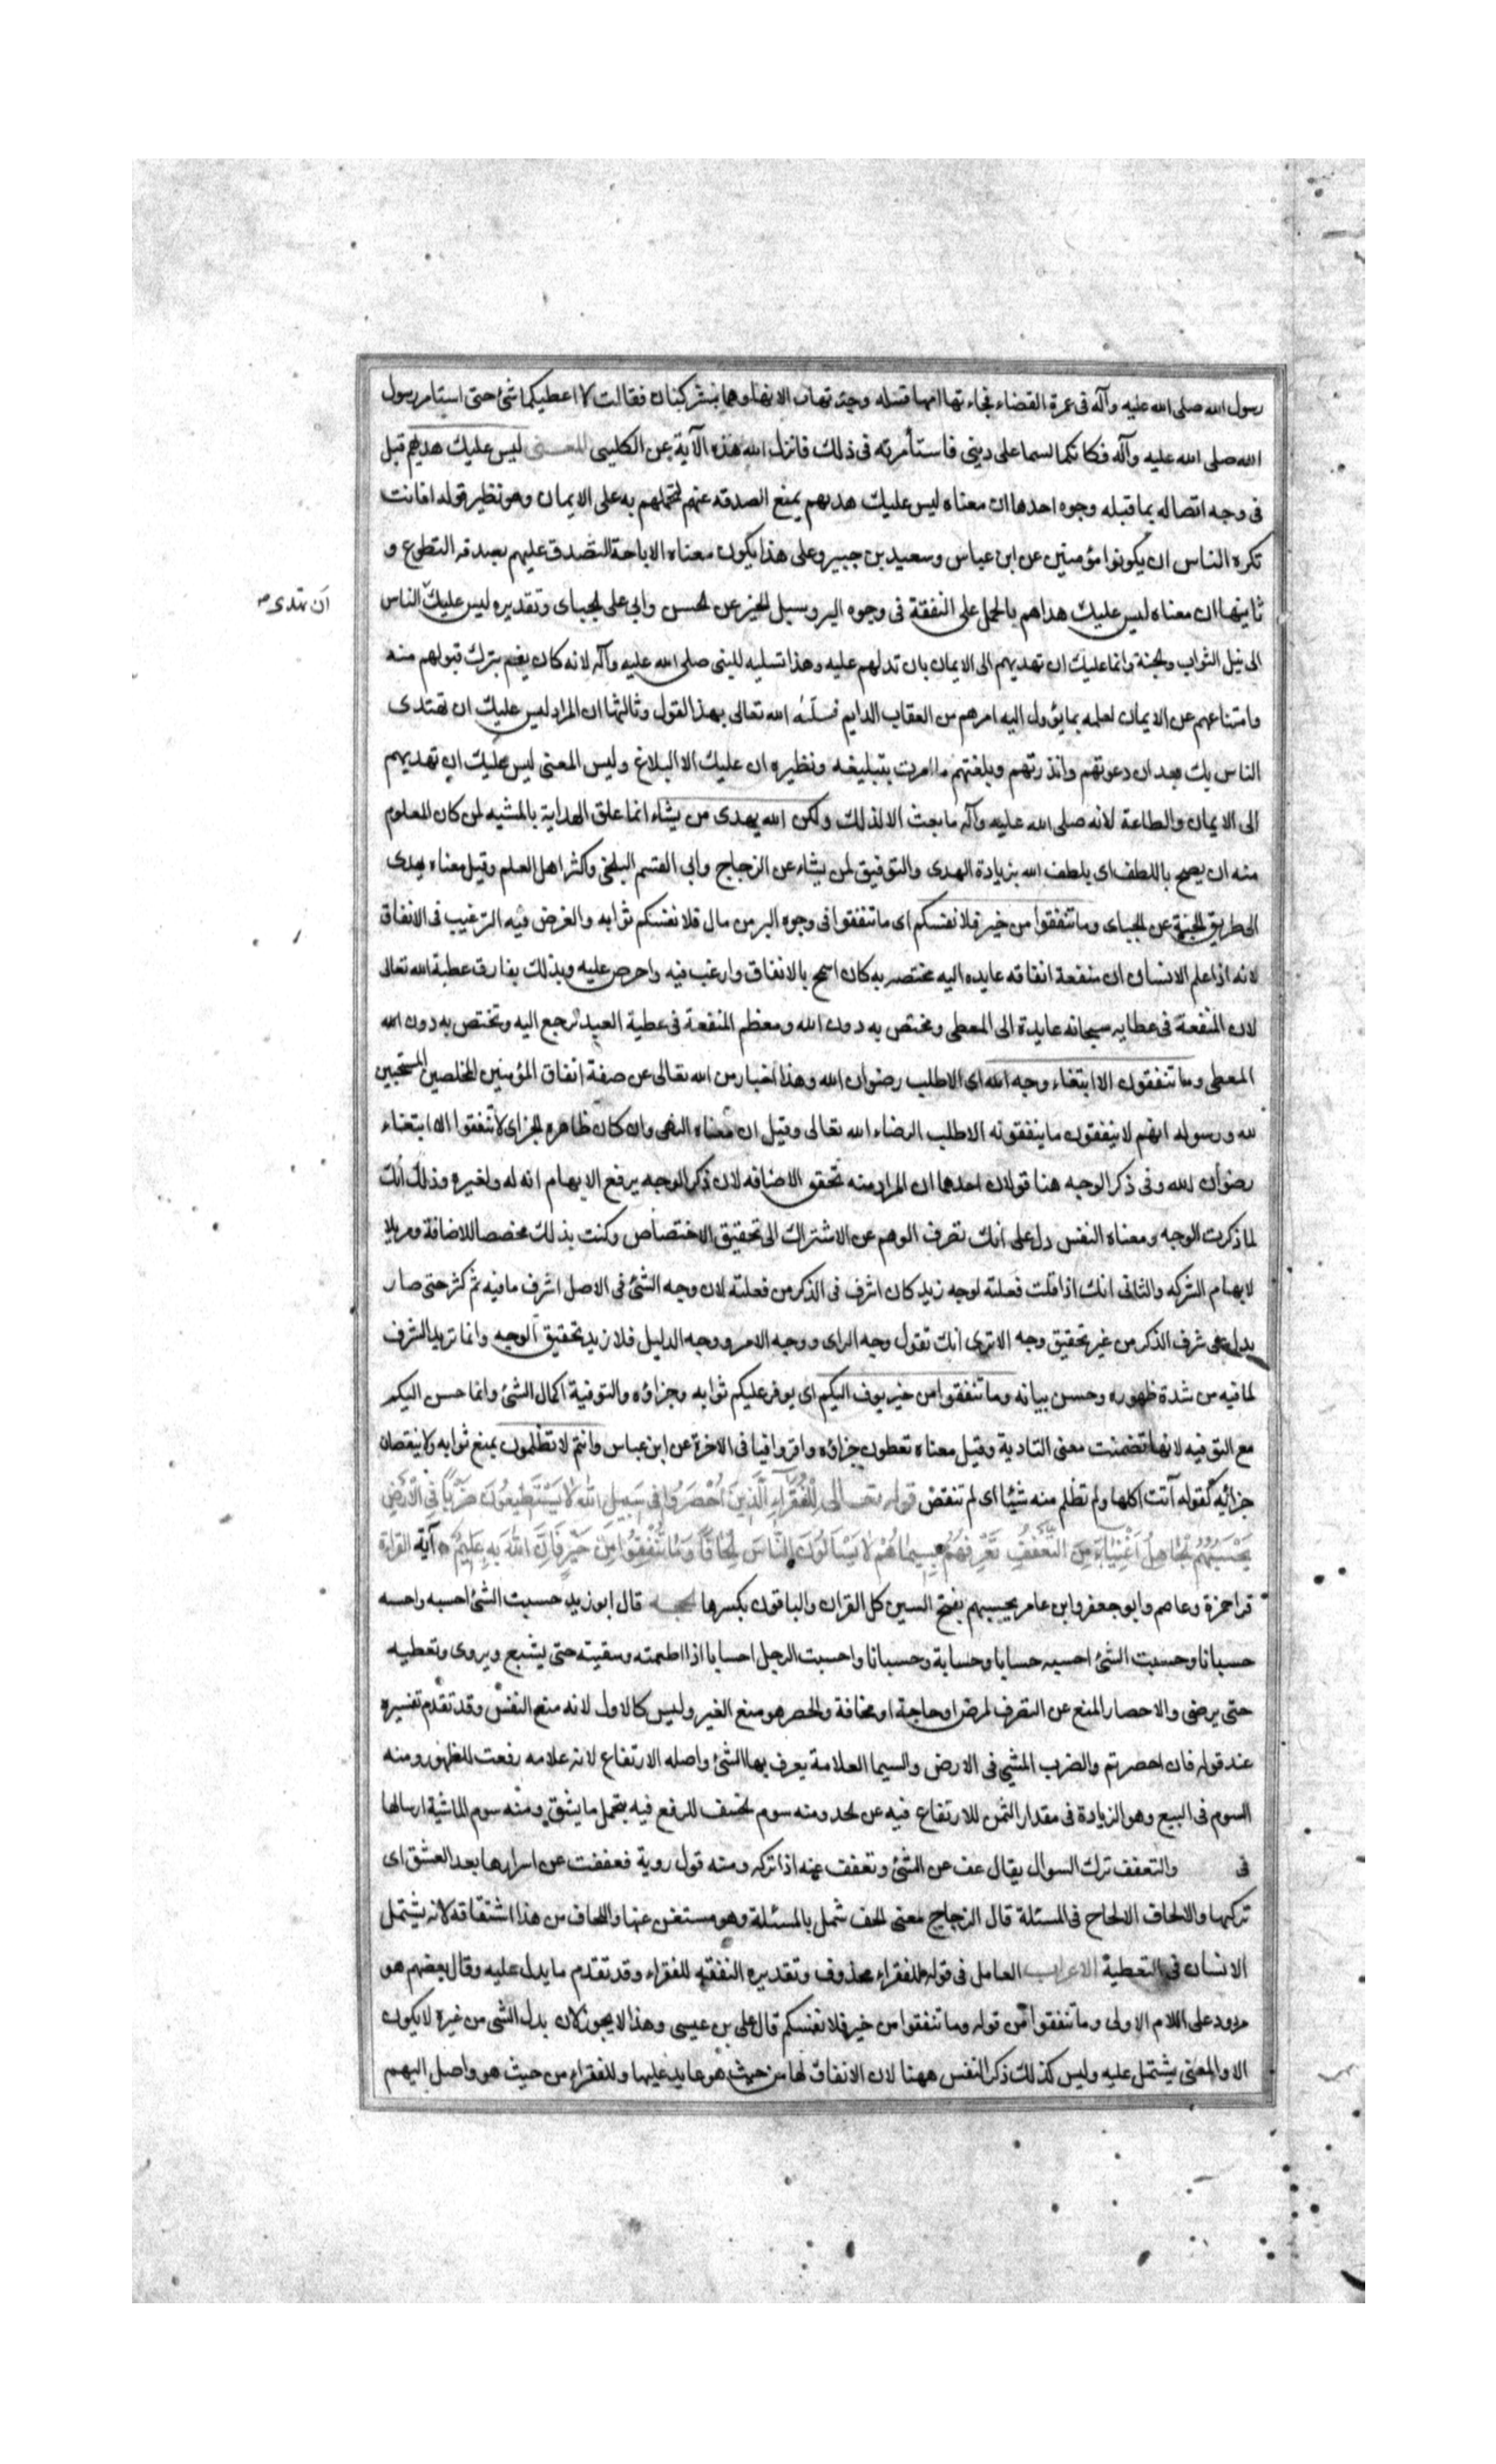 رسول الله صلى الله عليه وآله فى عمرة القضاء فجاءتها امها قتيله وجدتها تسالانها وهما مشركتان فقالت لا اعطيكما شئ حتى استامر رسول
الله صلى الله عليه وآله فكانكما لستما على دينى فاستأمرته فى ذلك فانزل الله هذه الآية عن الكلبى المعنى ليس عليك هديهم قيل
فى وجه اتصاله بما قبله وجوه احدها ان معناه ليس عليك هديهم بمنع الصدقه عنهم لتحملهم به على الايمان وهو نظير قوله افانت
تكره الناس ان يكونوا مؤمنين عن ابن عباس وسعيد بن جبير وعلى هذا يكون معناه الاباحة التصدق عليهم بصدقه التطوع و
ثانيها ان معناه ليس عليك هداهم بالحمل على النفقة فى وجوه البر وسبل الخير عن الحسن وابي على الجبائى وتقديره ليس عليك الناس
ان تهدى
الى نيل الثواب والجنة وانما عليك ان تهديهم الى الايمان بان تدلهم عليه وهذا تسليه للنبى صلى الله عليه وآله لانه كان يغتم بترك قبولهم منه
وامتناعهم عن الايمان لعلمه بما يؤول اليه امرهم من العقاب الدايم فسلاه الله تعالى بهذا القول وثالثها ان المراد ليس عليك ان تهتدى
الناس بك بعد ان دعوتهم وانذرتهم وبلغتهم ما امرت بتبليغه ونظيره ان عليك الا البلاغ وليس المعنى ليس عليك ان تهديهم
الى الايمان والطاعة لانه صلى الله عليه وآله ما بعث الا لذلك ولكن الله يهدى من يشاء انما علق الهداية بالمشيه لمن كان المعلوم
منه ان يصلح باللطف اى يلطف الله بزيادة الهدى والتوفيق لمن يشاء عن الزجاج وابى القسم البلخى واكثر اهل العلم وقيل معناه يهدى
الى طريق الجنة عن الجبائى وما تنفقوا من خير فلانفسكم اى ما تنفقوا فى وجوه البر من مال فلانفسكم ثوابه والغرض فيه الترغيب فى الانفاق
لانه اذا علم الانسان ان منفعة انفاقه عايده اليه مختصه به كان اسمح بالانفاق وارغب فيه واحرص عليه وبذلك يفارق عطية الله تعالى
لان المنفعة فى عطايه سبحانه عايدة الى المعطى ومختص به دون الله ومعظم المنفعة فى عطية العبد ترجع اليه وتختص به دون الله
المعطى وما تنفقون الا ابتغاء وجه الله اى الا طلب رضوان الله وهذا اخبار من الله تعالى عن صفة انفاق المؤمنين المخلصين المستجيبين
لله ورسوله انهم لا ينفقون ما ينفقونه الا طلب الرضاء الله تعالى وقيل ان معناه النهى وان كان ظاهره الخبر اى لا تنفقوا الا ابتغاء
رضوان الله وفى ذكر الوجه هنا قولان احدهما ان المراد منه تحقق الاضافه لان ذكر الوجه يرفع الابهام انه له ولغيره وذلك انك
لما ذكرت الوجه ومعناه النفس دل على انك تصرف الوهم عن الاشتراك الى تحقيق الاختصاص وكنت بذلك مخصصا للاضافة ومزيلا
لابهام الشركه والثانى انك اذا قلت فعلته لوجه زيد كان اشرف فى الذكر من فعلته لان وجه الشئ فى الاصل اشرف ما فيه ثم كثر حتى صار
يدل على شرف الذكر من غير تحقيق وجه الا ترى انك تقول وجه الراى ووجه الامر ووجه الدليل فلا تريد تحقيق الوجه وانما تريد الشرف
لما فيه من شدة ظهوره وحسن بيانه وما تنفقوا من خير يوف اليكم اى يوفر عليكم ثوابه وجزاؤه والتوفية اكمال الشئ وانما حسن اليكم
مع التوفيه لانها تضمنت معنى التادية وقيل معناه تعطون جزاؤه وافرا وافيا فى الاخرة عن ابن عباس وانتم لا تظلمون بمنع ثوابه ولا بنقصان
جزائه كقوله آتت اكلها ولم تظلم منه شيئا اى لم تنقص قوله تعالى لِلْفُقَرَاءِ الَّذِينَ اُحْصِرُوا فِى سَبِيلِ اللهِ لَا يَسْتَطِيعُونَ ضَرْبًا فِى الْاَرْضِ
يَحْسَبُهُمُ الْجَاهِلُ اَغْنِيَاءَ مِنَ التَّعَفُّفِ تَعْرِفُهُمْ بِسِيمَاهُمْ لَا يَسْأَلُونَ النَّاسَ اِلْحَافًا وَمَا تُنْفِقُوا مِنْ خَيْرٍ فَاِنَّ اللهَ بِهِ عَلِيمٌ آية القراءة
قرا حمزة وعاصم وابو جعفر وابن عامر يحسبهم بفتح السين كل القران والباقون بكسرها الحجه قال ابو زيد حسبت الشئ احسبه واحسبه
حسبانا وحسبت الشئ احسبه حسابا وحسابة وحسبانا واحسبت الرجل احسابا اذا اطعمته وسقيته حتى يشبع ويروى وتعطيه
حتى يرضى والاحصار المنع عن التصرف لمرض او حاجة او مخافة والحصر هو منع الغير وليس كالاول لانه منع النفس وقد تقدم تفسيره
عند قوله فان احصرتم والضرب المشى فى الارض والسيما العلامة يعرف بها الشئ واصله الارتفاع لانه علامه رفعت للظهور ومنه
السوم فى البيع وهو الزيادة فى مقدار الثمن للارتفاع فيه عن الحد ومنه سوم الخسف للرفع فيه بتحمل ما يشق ومنه سوم الماشية ارسالها
فى والتعفف ترك السوال يقال عف عن الشئ وتعفف عنه اذا تركه ومنه قول روبة فعففت عن اسرارها بعد العشق اى
تركها والالحاف الالحاح فى المسئلة قال الزجاج معنى الحف شمل بالمسئلة وهو مستغن عنها واللحاف من هذا اشتقاقه لانه يشتمل
الانسان فى التغطية الاعراب العامل فى قوله للفقراء محذوف وتقديره النفقه للفقراء وقد تقدم ما يدل عليه وقال بعضهم هو
مردود على اللام الاولى وما تنفقوا من قوله وما تنفقوا من خير فلانفسكم قال على بن عيسى وهذا لا يجوز لان بدل الشى من غيره لا يكون
الا والمعنى يشتمل عليه وليس كذلك ذكر النفس ههنا لان الانفاق لها من حيث هو عايد عليها وللفقراء من حيث هو واصل اليهم